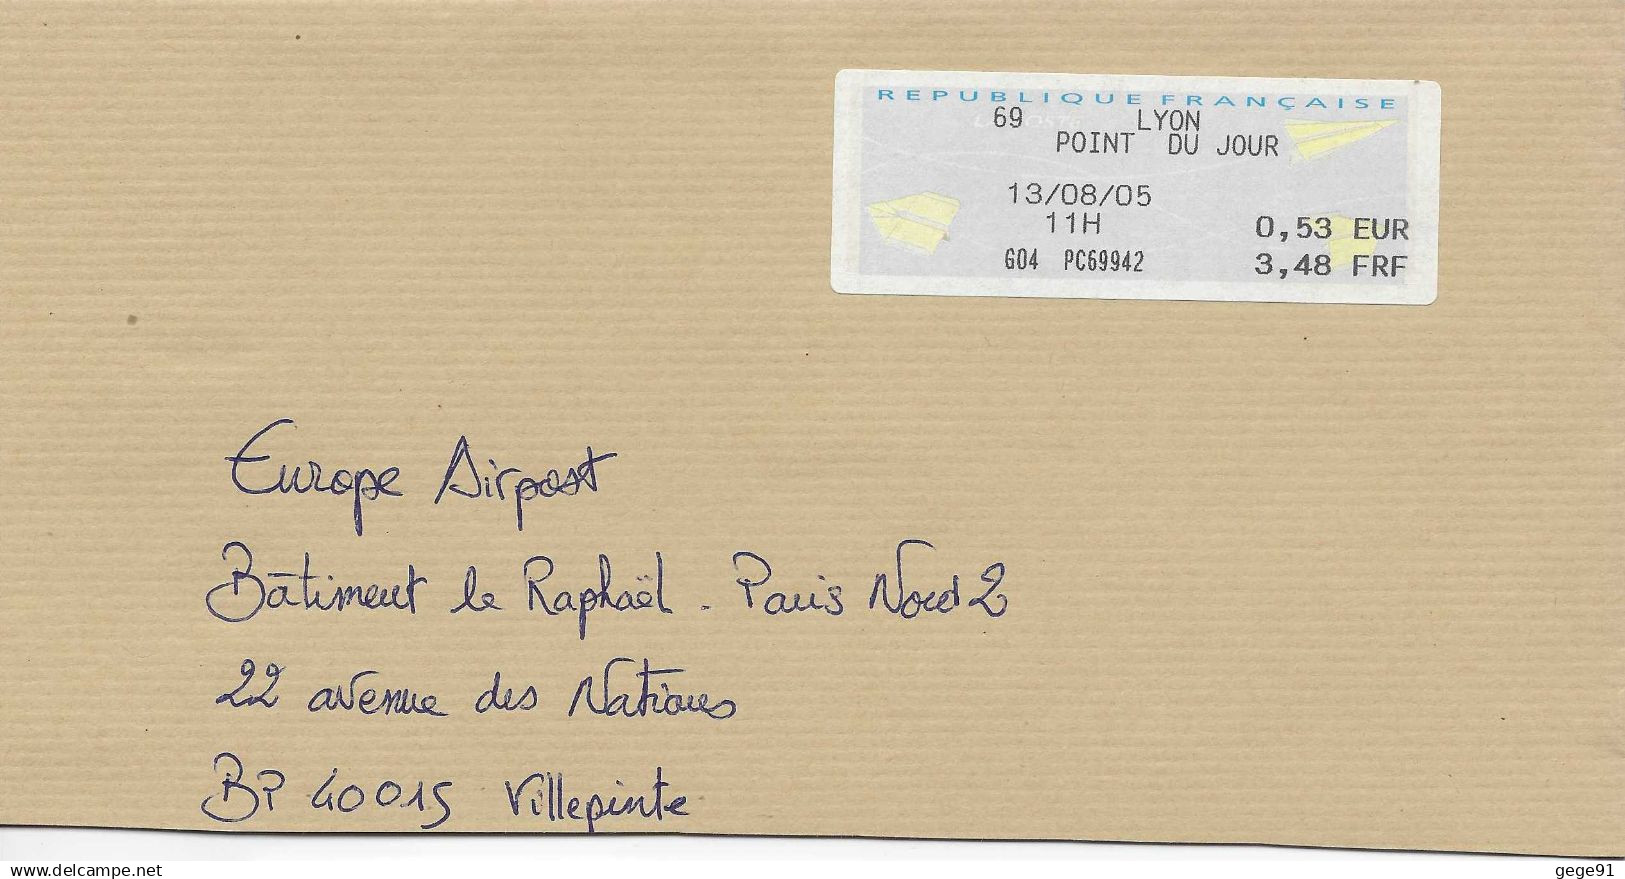 REPUBLIQUE FRANÇAISE
69 LYON
POINT DU JOUR
13/08/05
11H
0,53 EUR
G04 PC69942
3,48 FRF
Europe Airpost
Bâtiment le Raphaël. Paris Nord 2
22 avenue des Nations
BP 40015 Villepinte
delcampe.net
gege91